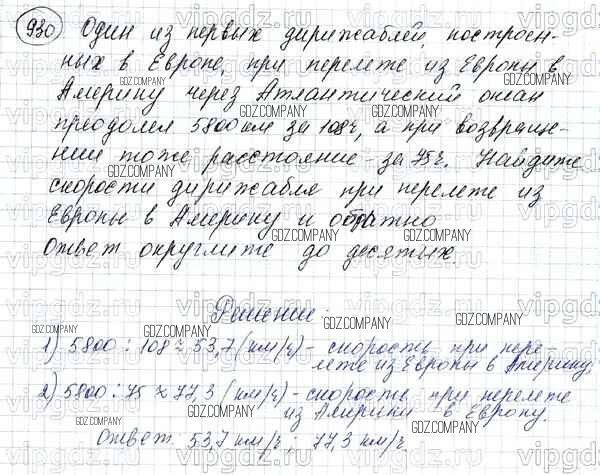 930 Один из первых дирижаблей, построен-
ных в Европе, при перелете из Европы в
Америку через Атлантический океан
преодолел 5800 км за 108 ч, а при возвраще-
нии тоже расстояние - за 75 ч. Найдите
скорости дирижабля при перелете из
Европы в Америку и обратно
Ответ округлите до десятых.
Решение:
1) 5800 : 108 ≈ 53,7 (км/ч) - скорость при пере-
лете из Европы в Америку,
2) 5800 : 75 ≈ 77,3 (км/ч) - скорость при перелете
из Америки в Европу.
Ответ 53,7 км/ч ; 77,3 км/ч